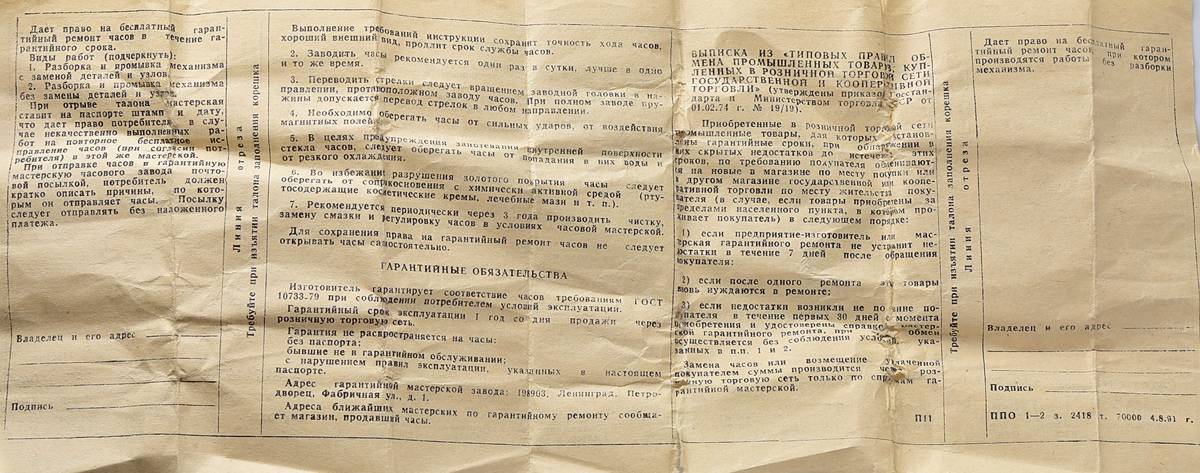 Дает право на бесплатный гаран-
тийный ремонт часов в течение га-
рантийного срока.
Виды работ (подчеркнуть):
1. Разборка и промывка механизма
с заменой деталей и узлов.
2. Разборка и промывка механизма
без замены деталей и узлов.
При отрыве талона мастерская
ставит на паспорте штамп и дату,
что дает право потребителю в слу-
чае некачественно выполненных ра-
бот на повторное бесплатное ис-
правление часов (при согласии пот-
ребителя) в этой же мастерской.
При отправке часов в гарантийную
мастерскую часового завода почто-
вой посылкой, потребитель должен
кратко описать причины, по кото-
рым он отправляет часы. Посылку
следует отправлять без наложенного
платежа.
Владелец и его адрес
Подпись
Линия отреза
Требуйте при изъятии талона заполнения корешка
Выполнение требований инструкции сохранит точность хода часов,
хороший внешний вид, продлит срок службы часов.
2. Заводить часы рекомендуется один раз в сутки, лучше в одно
и то же время.
3. Переводить стрелки следует вращением заводной головки в на-
правлении, противоположном заводу часов. При полном заводе пру-
жины допускается перевод стрелок в любом направлении.
4. Необходимо оберегать часы от сильных ударов, от воздействия
магнитных полей.
5. В целях предупреждения запотевания внутренней поверхности
стекла часов, следует оберегать часы от попадания в них воды и
от резкого охлаждения.
6. Во избежание разрушения золотого покрытия часы следует
оберегать от соприкосновения с химически активной средой (рту-
тосодержащие косметические кремы, лечебные мази и т. п.).
7. Рекомендуется периодически через 3 года производить чистку,
замену смазки и регулировку часов в условиях часовой мастерской.
Для сохранения права на гарантийный ремонт часов не следует
открывать часы самостоятельно.
ГАРАНТИЙНЫЕ ОБЯЗАТЕЛЬСТВА
Изготовитель гарантирует соответствие часов требованиям ГОСТ
10733-79 при соблюдении потребителем условий эксплуатации.
Гарантийный срок эксплуатации 1 год со дня продажи через
розничную торговую сеть.
Гарантия не распространяется на часы:
без паспорта;
бывшие не в гарантийном обслуживании;
с нарушением правил эксплуатации, указанных в настоящем
паспорте.
Адрес гарантийной мастерской завода: 198903, Ленинград, Петро-
дворец, Фабричная ул., д. 1.
Адреса ближайших мастерских по гарантийному ремонту сообща-
ет магазин, продавший часы.
ВЫПИСКА ИЗ «ТИПОВЫХ ПРАВИЛ ОБ-
МЕНА ПРОМЫШЛЕННЫХ ТОВАРОВ, КУП-
ЛЕННЫХ В РОЗНИЧНОЙ ТОРГОВОЙ СЕТИ
ГОСУДАРСТВЕННОЙ И КООПЕРАТИВНОЙ
ТОРГОВЛИ» (утверждены приказом Госстан-
дарта и Министерством торговли СССР от
01.02.74 г. № 19/19).
Приобретенные в розничной торговой сети
промышленные товары, для которых установ-
лены гарантийные сроки, при обнаружении в
них скрытых недостатков до истечения этих
сроков, по требованию покупателя обменивают-
ся на новые в магазине по месту покупки или
в другом магазине государственной или коопе-
ративной торговли по месту жительства поку-
пателя (в случае, если товары приобретены за
пределами населенного пункта, в котором про-
живает покупатель) в следующем порядке:
1) если предприятие-изготовитель или мас-
терская гарантийного ремонта не устранит не-
достатки в течение 7 дней после обращения
покупателя:
2) если после одного ремонта эти товары
вновь нуждаются в ремонте;
3) если недостатки возникли не по вине по-
купателя в течение первых 30 дней с момента
приобретения и удостоверены справкой мастер-
ской гарантийного ремонта, при этом обмен
осуществляется без соблюдения условий, ука-
занных в п.п. 1 и 2.
Замена часов или возмещение уплаченной
покупателем суммы производится через роз-
ничную торговую сеть только по справкам га-
рантийной мастерской.
П11
Требуйте при изъятии талона заполнения корешка
Линия отреза
Дает право на бесплатный гаран-
тийный ремонт часов, при котором
производятся работы без разборки
механизма.
Владелец и его адрес
Подпись
ППО 1—2 з. 2418 т. 70000 4.8.91 г.